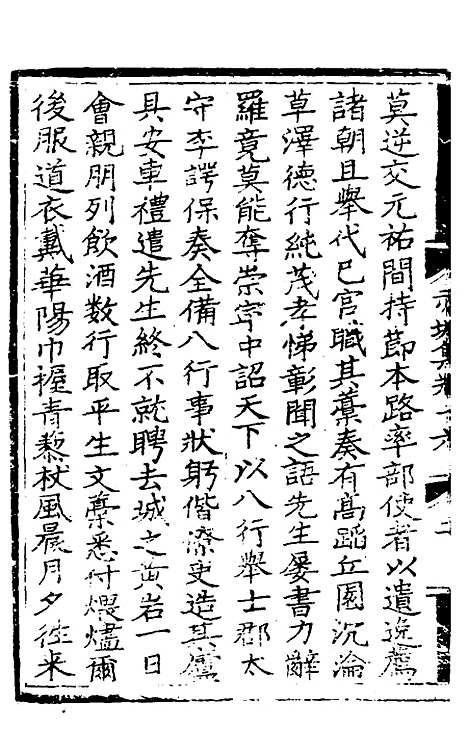 莫逆交元祐間持節本路率部使者以遺逸薦
諸朝且舉代已官職其藁奏有高蹈丘園沉淪
草澤德行純茂孝悌彰聞之語先生屡書力辭
羅竟莫能奪崇寧中詔天下以八行舉士郡太
守李諤保奏全備八行事狀躬偕僚吏造其廬
具安車禮遣先生終不就聘去城之黄岩一日
會親朋列飲酒数行取平生文藁悉付煨燼爾
後服道衣戴華陽巾握青藜杖風晨月夕往来